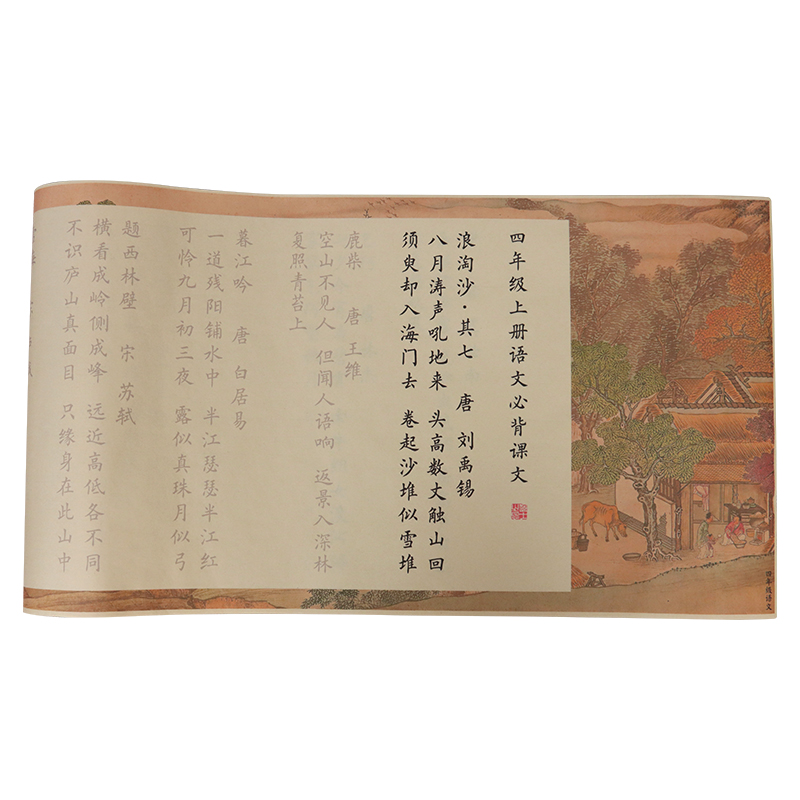 四年级上册语文必背课文
浪淘沙·其七 唐 刘禹锡
八月涛声吼地来 头高数丈触山回
须臾却入海门去 卷起沙堆似雪堆
鹿柴 唐 王维
空山不见人 但闻人语响 返景入深林
复照青苔上
暮江吟 唐 白居易
一道残阳铺水中 半江瑟瑟半江红
可怜九月初三夜 露似真珠月似弓
题西林壁 宋 苏轼
横看成岭侧成峰 远近高低各不同
不识庐山真面目 只缘身在此山中
四年级语文